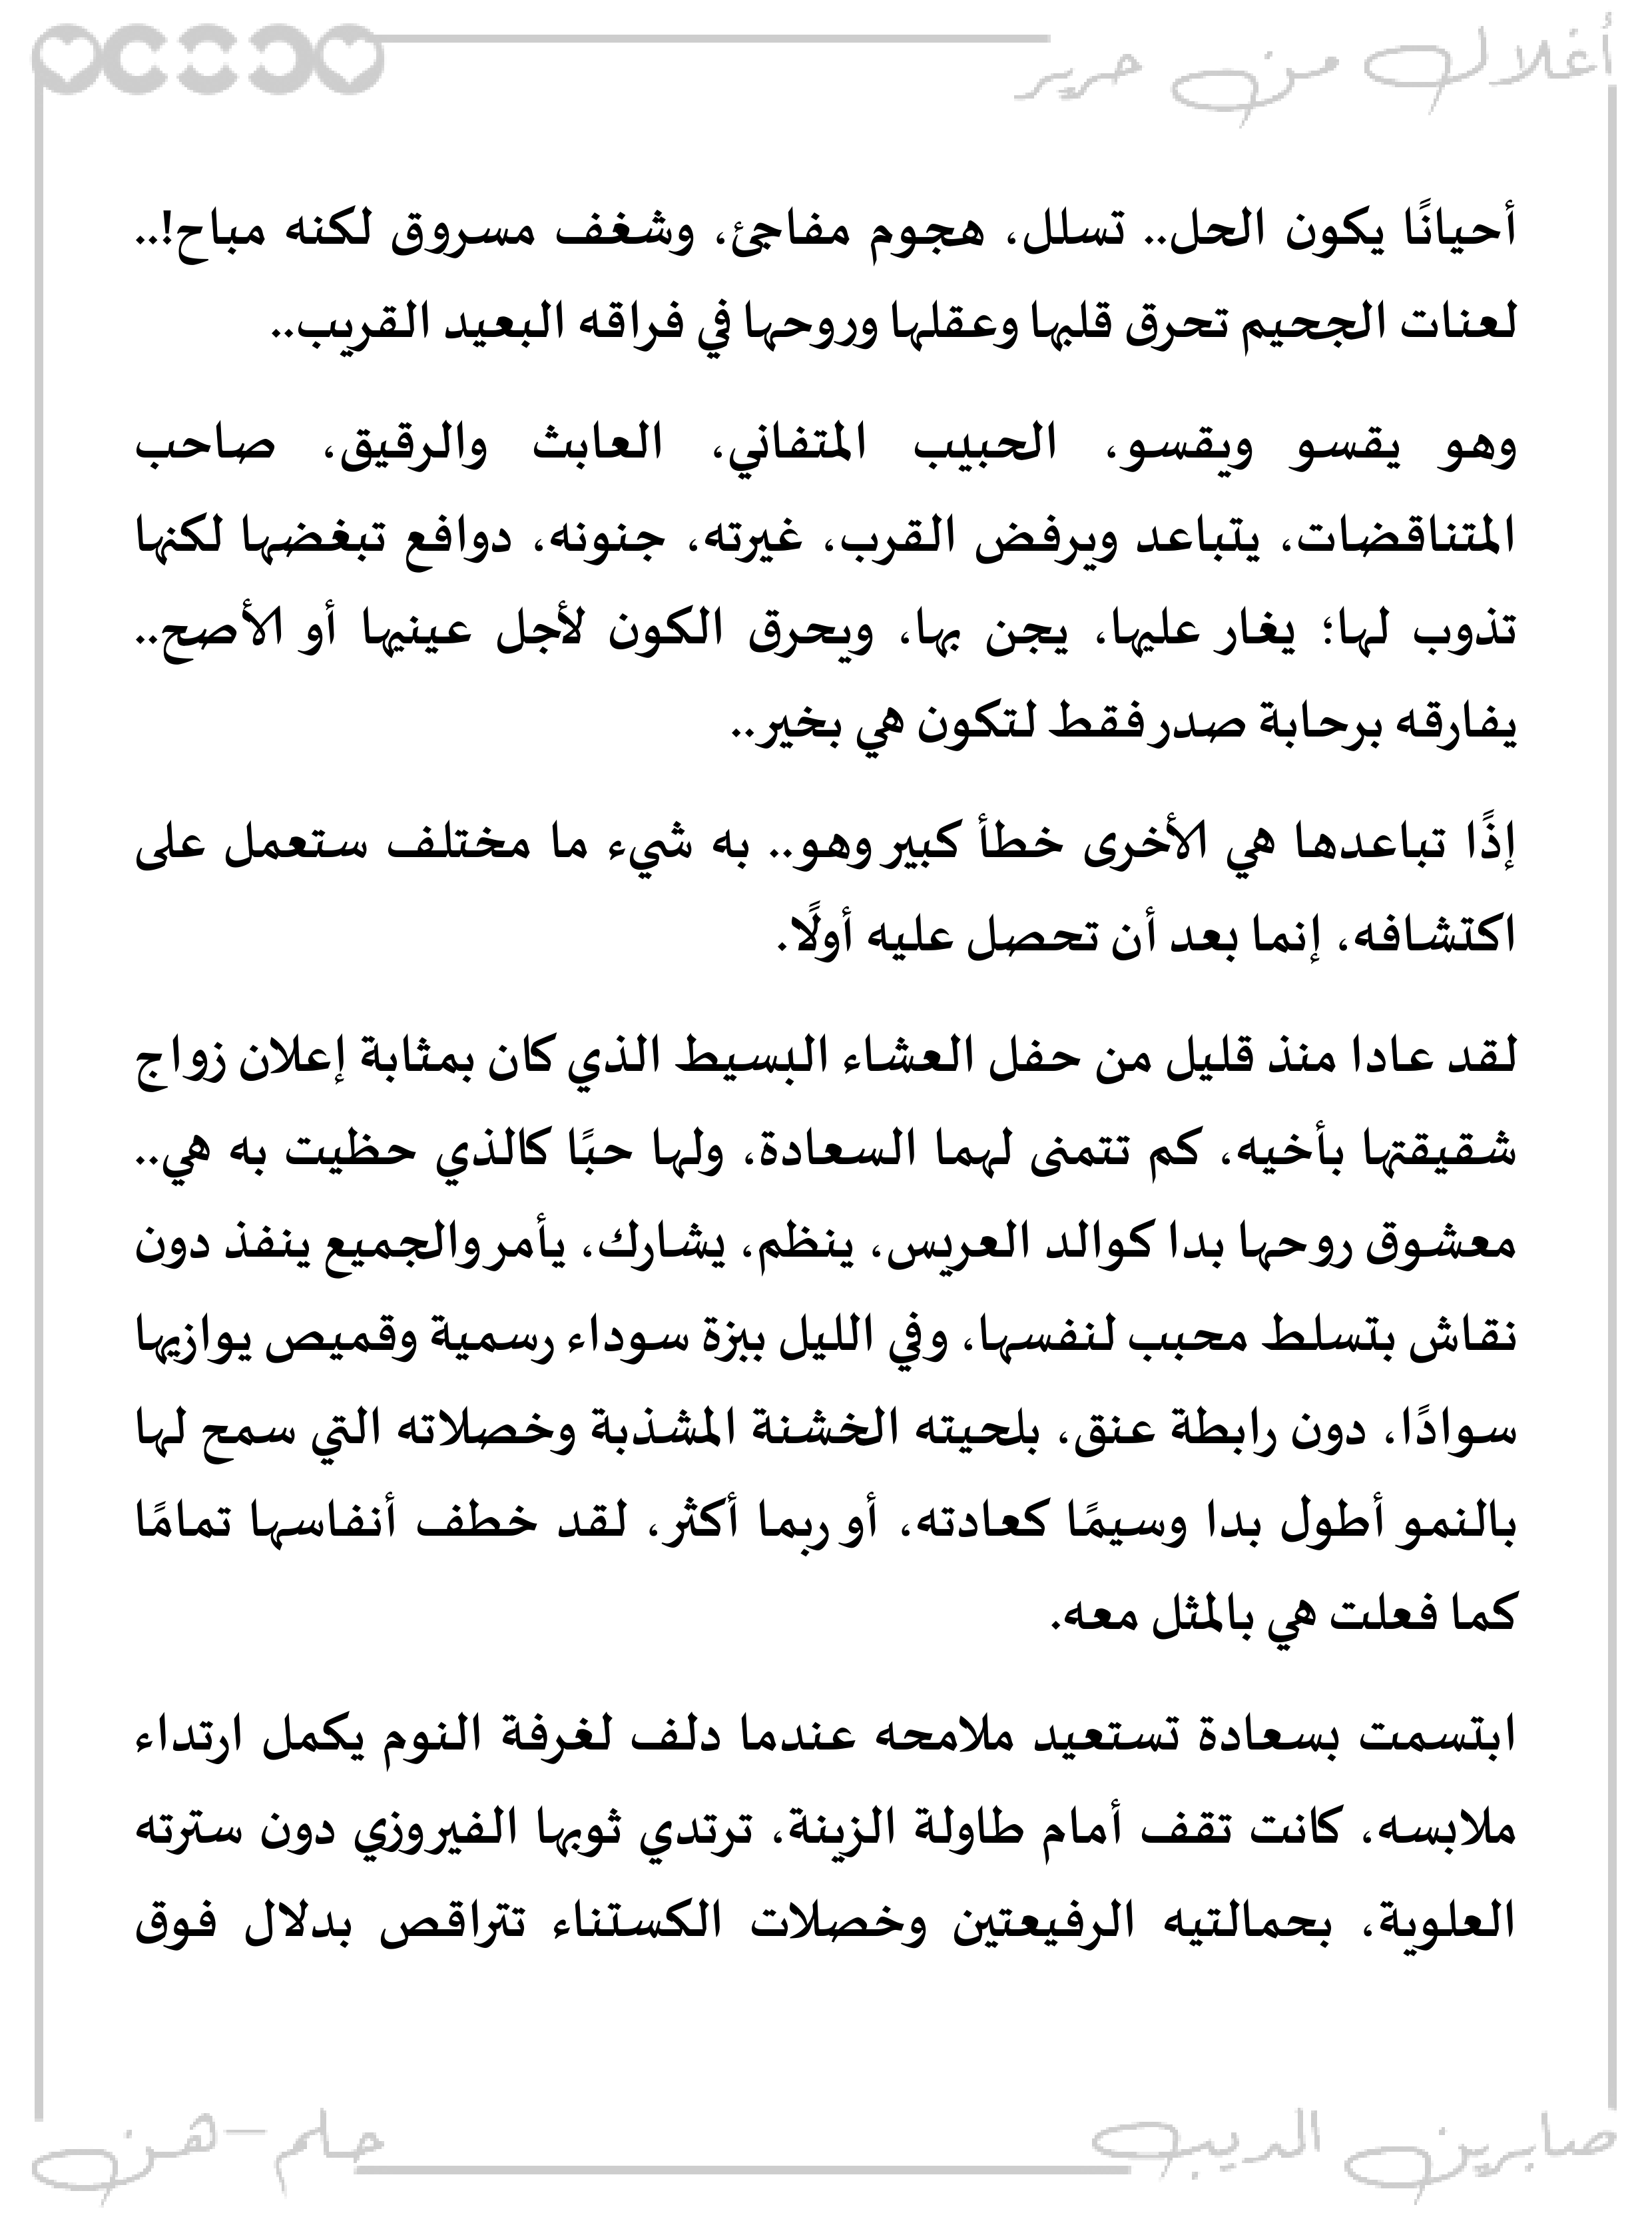 أغلال من حرير
أحيانًا يكون الحل.. تسلل، هجوم مفاجئ، وشغف مسروق لكنه مباح!..
لعنات الجحيم تحرق قلبها وعقلها وروحها في فراقه البعيد القريب..
وهو يقسو ويقسو، الحبيب المتفاني، العابث والرقيق، صاحب
المتناقضات، يتباعد ويرفض القرب، غيرته، جنونه، دوافع تبغضها لكنها
تذوب لها؛ يغار عليها، يجن بها، ويحرق الكون لأجل عينيها أو الأصح..
يفارقه برحابة صدر فقط لتكون هي بخير..
إذًا تباعدها هي الأخرى خطأ كبير وهو.. به شيء ما مختلف ستعمل على
اكتشافه، إنما بعد أن تحصل عليه أولًا.
لقد عادا منذ قليل من حفل العشاء البسيط الذي كان بمثابة إعلان زواج
شقيقتها بأخيه، كم تتمنى لهما السعادة، ولها حبًا كالذي حظيت به هي..
معشوق روحها بدا كوالد العريس، ينظم، يشارك، يأمر والجميع ينفذ دون
نقاش بتسلط محبب لنفسها، وفي الليل ببزة سوداء رسمية وقميص يوازيها
سوادًا، دون رابطة عنق، بلحيته الخشنة المشذبة وخصلاته التي سمح لها
بالنمو أطول بدا وسيمًا كعادته، أو ربما أكثر، لقد خطف أنفاسها تمامًا
كما فعلت هي بالمثل معه.
ابتسمت بسعادة تستعيد ملامحه عندما دلف لغرفة النوم يكمل ارتداء
ملابسه، كانت تقف أمام طاولة الزينة، ترتدي ثوبها الفيروزي دون سترته
العلوية، بحمالتيه الرفيعتين وخصلات الكستناء تتراقص بدلال فوق
صابرين الديب
حلم-هن